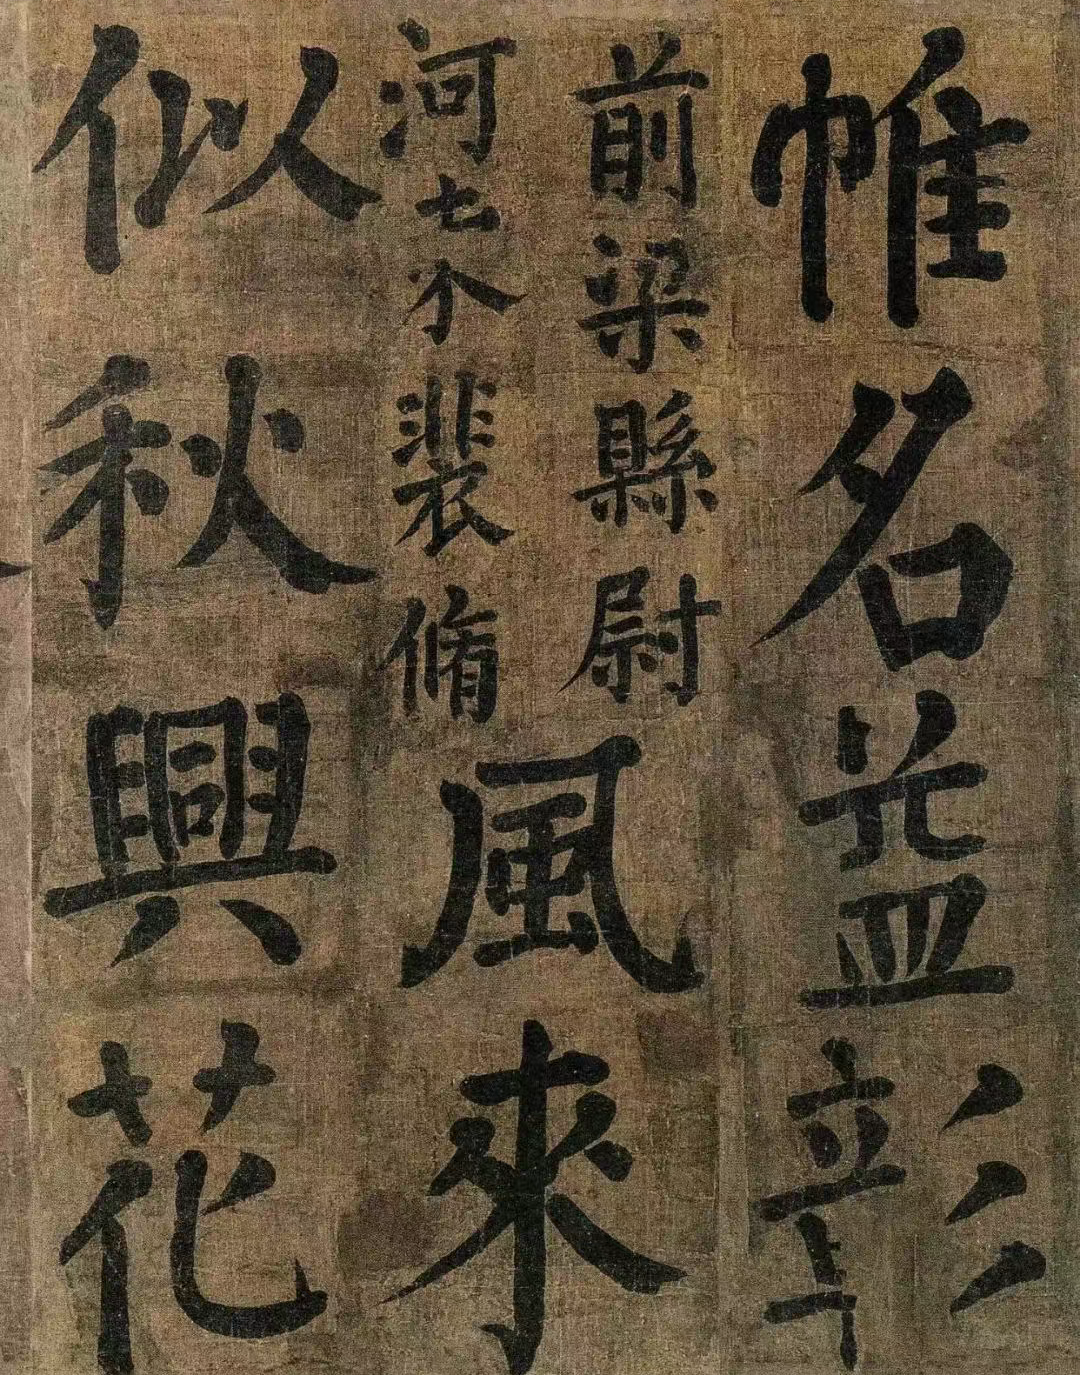 帷名益彰
前梁縣尉
河七裴脩
風來
似秋興花